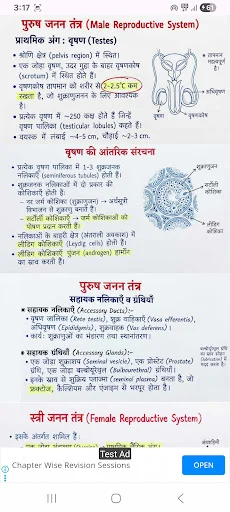 3:17
61
पुरुष जनन तंत्र (Male Reproductive System)
प्राथमिक अंग : वृषण (Testes)
• श्रोणि क्षेत्र (pelvis region) में स्थित।
• एक जोड़ा वृषण, उदर गुहा के बाहर वृषणकोष
(scrotum) में स्थित होते हैं।
• वृषणकोष तापमान को शरीर से 2-2.5°C कम
रखता है, जो शुक्राणुजनन के लिए आवश्यक
है।
• प्रत्येक वृषण में ~250 कक्ष होते हैं जिन्हें
वृषण पालिका (testicular lobules) कहते हैं।
• वयस्क में लंबाई ~4-5 cm, चौड़ाई ~2-3 cm.
तापमान
महत्वपूर्ण
है!
अधिवृषण
वृषण
वृषणकोष
वृषण की आंतरिक संरचना
• प्रत्येक वृषण पालिका में 1-3 शुक्रजनक
नलिकाएँ (seminiferous tubules) होती हैं।
• शुक्रजनक नलिकाओं में दो प्रकार की
कोशिकाएँ होती हैं:
→ नर जर्म कोशिका (शुक्राणुजन) → अर्धसूत्री
विभाजन से शुक्राणु बनाते हैं।
→ सर्टोली कोशिकाएँ → जर्म कोशिकाओं को
पोषण प्रदान करती हैं।
• नलिकाओं के बाहरी क्षेत्र (अंतराली अवकाश) में
लीडिग कोशिकाएँ (Leydig cells) होती हैं।
• लीडिग कोशिकाएँ पुंजन (androgen) हार्मोन
का स्राव करती हैं।
शुक्राणुजन
सर्टोली
कोशिका
लीडिग
कोशिका
पुरुष जनन तंत्र
सहायक नलिकाएँ व ग्रंथियाँ
• सहायक नलिकाएँ (Accessory Ducts):-
• वृषण जालिका (Rete testis), शुक्र वाहिकाएँ (Vasa efferentia),
अधिवृषण (Epididymis), शुक्रवाहक (Vas deferens)।
• कार्य: शुक्राणुओं का भंडारण तथा स्थानांतरण।
• सहायक ग्रंथियाँ (Accessory Glands):-
• एक जोड़ा शुक्राशय (Seminal vesicle), एक प्रोस्टेट (Prostate)
ग्रंथि, एक जोड़ा बल्बोयूरेथ्रल (Bulbourethral) ग्रंथियाँ।
• इनके स्राव से शुक्रिय प्लाज्मा (seminal plasma) बनता है, जो
फ्रक्टोज, कैल्शियम और एंजाइम से भरपूर होता है।
स्त्री जनन तंत्र (Female Reproductive System)
• इसके अंतर्गत शामिल हैं:
Test Ad
Chapter Wise Revision Sessions
OPEN